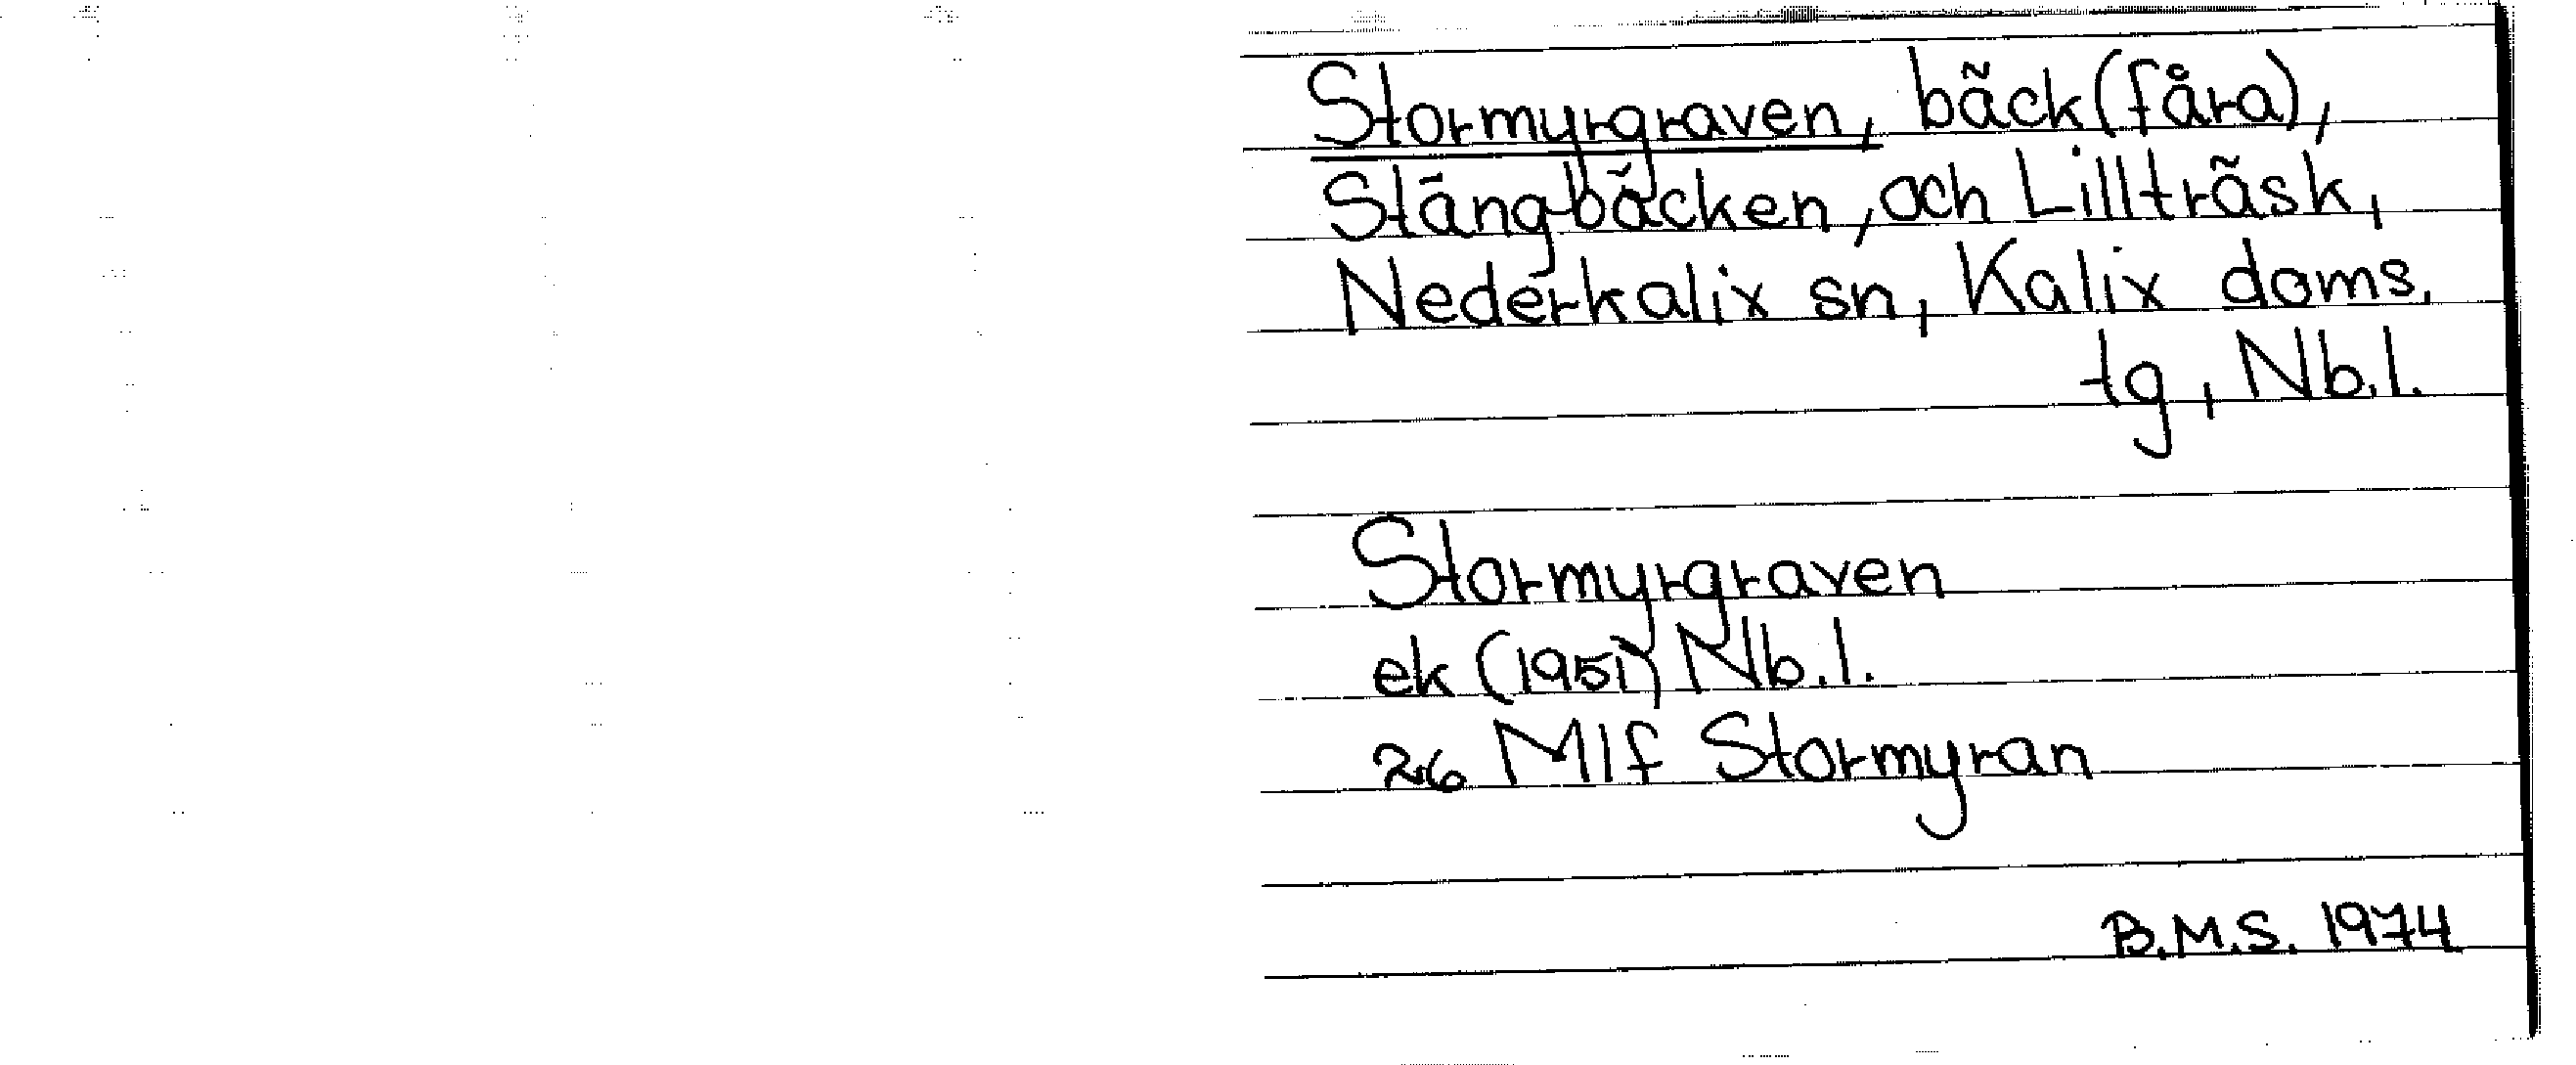 Stormyrgraven, bäck(fåra),
Stängbäcken, och Lillträsk,
Nederkalix sn, Kalix doms.
tg, Nb.l.
Stormyrgraven
ek (1951) Nb.l.
26 Mlf Stormyran
B.M.S. 1974